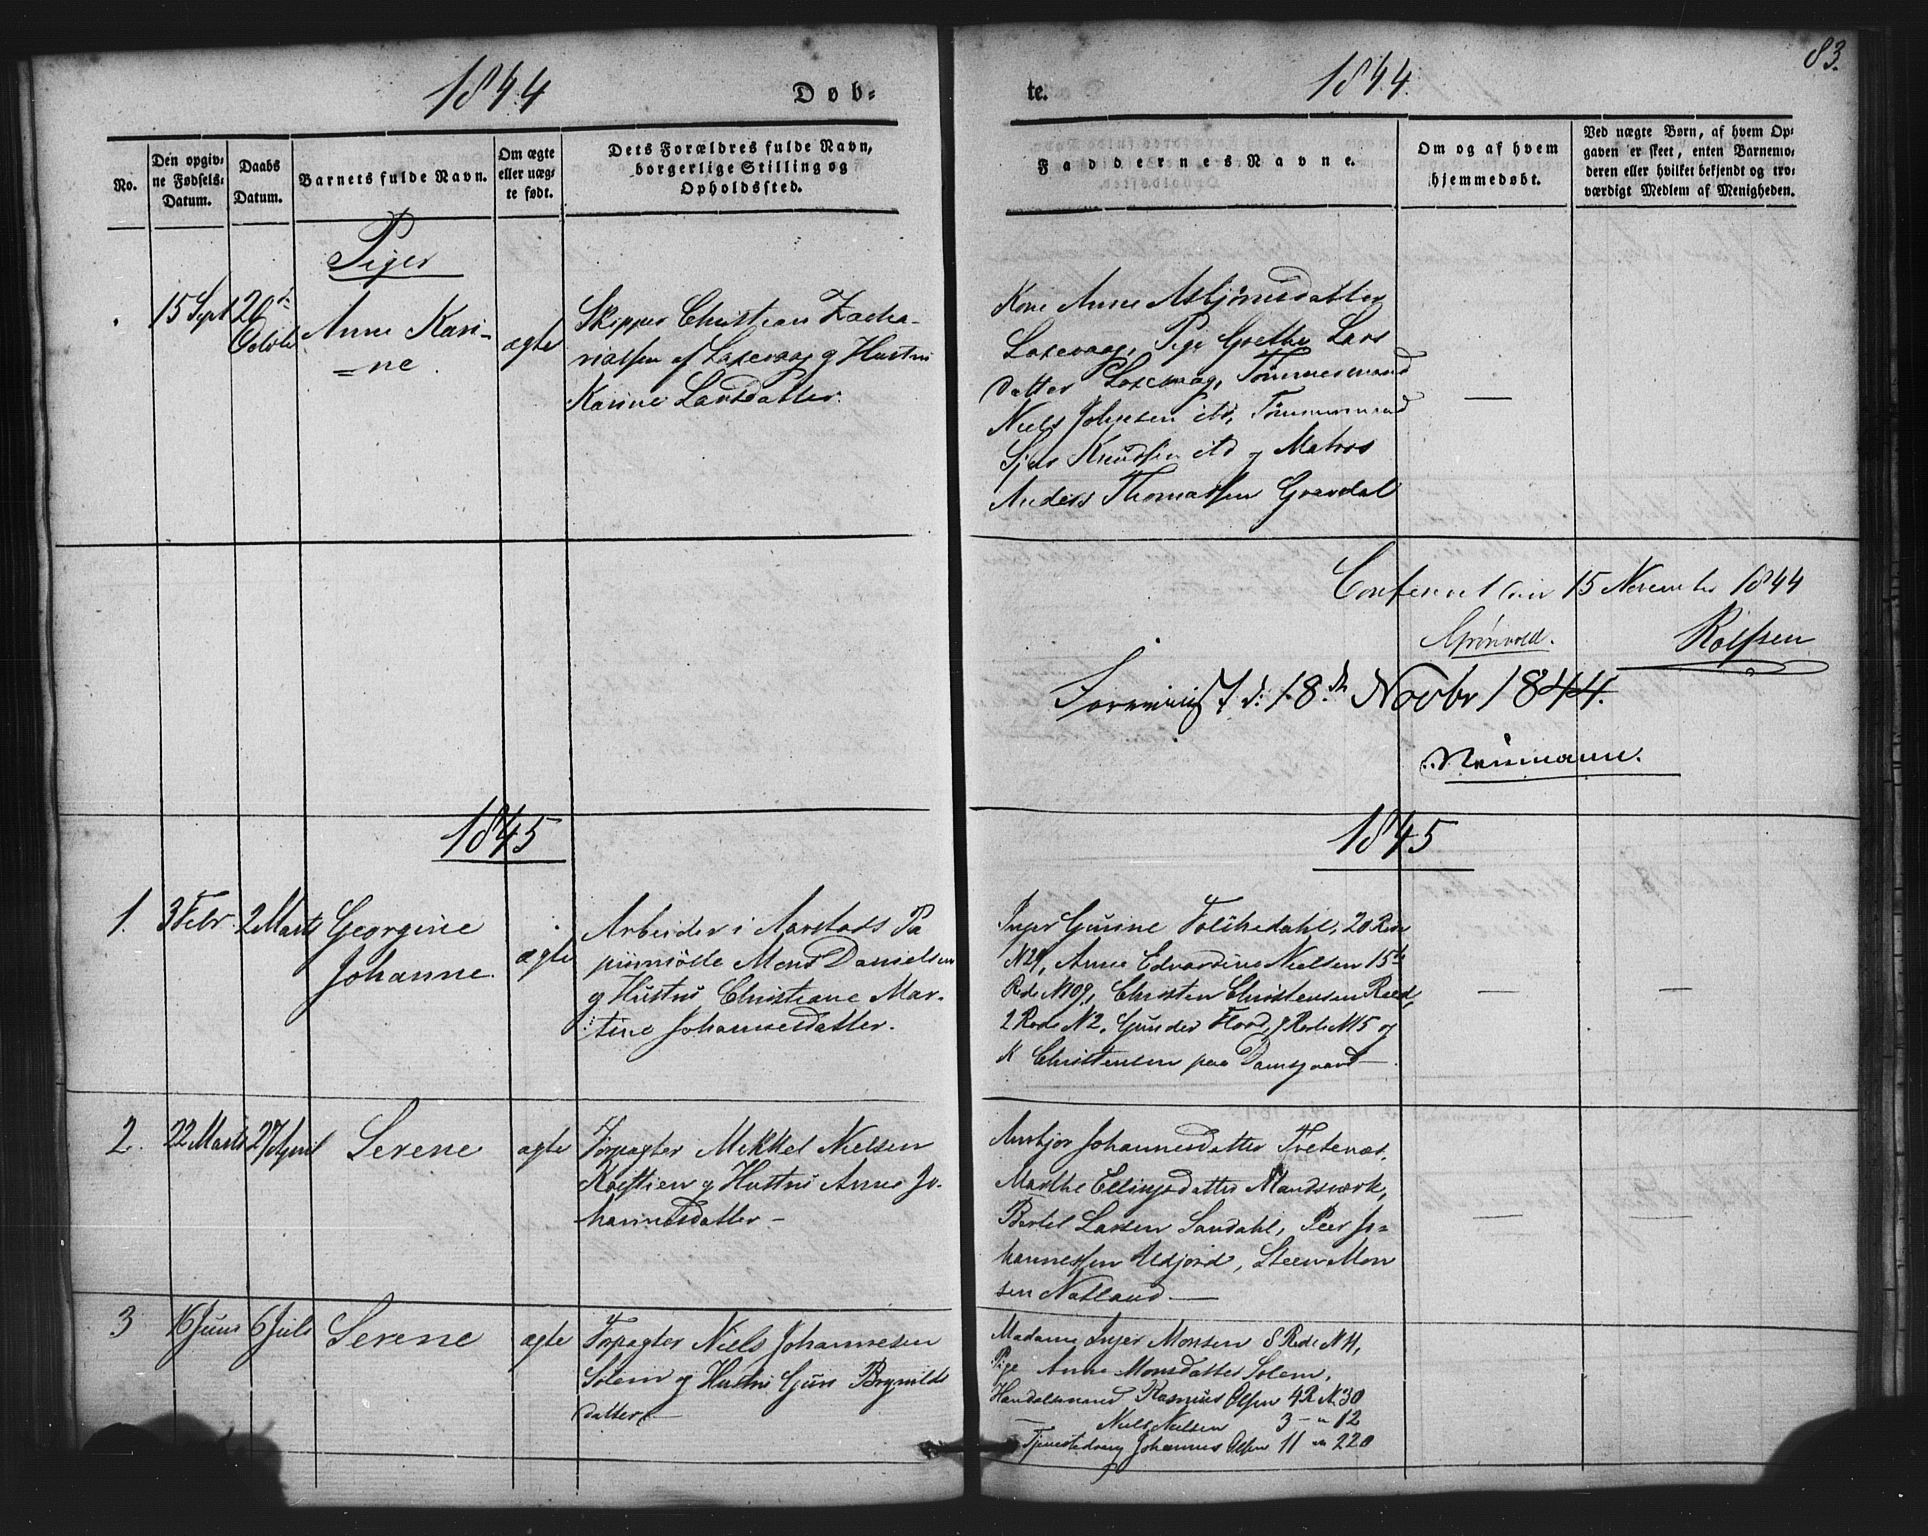 83.
1844
Døb-
te.
1844.
No.
Den opgiv-
ne Fødsels-
Datum.
Daabs
Datum.
Barnets fulde Navn.
Om ægte
eller uæg-
te født.
Dets Forældres fulde Navn,
borgerlige Stilling og
Opholdssted.
Faddernes Navne.
Om og af hvem
hjemmedøbt.
Ved uægte Børn, af hvem Op-
gaven er skeet, enten Barnemo-
deren eller hvilket bekjendt og tro-
værdigt Medlem af Menigheden.
Piger
15 Sept
Anne Kari-
=ne
ægte
Skipper Christian Zacha-
riassen af Laxevaag og Hustru
Karine Larsdatter.
Kone Anne Asbjørnsdatter
Laxevaag, Pige Grethe Lars
datter Laxevaag, Tømmermand
Niels Johnsen ibd, Tømmermand
Knudsen ibd og Matros
Anders Thomassen Gravdal
—
15 November 1844
Grønvold.
Rolfsen
18de Novbr 1844.
Neumann.
1845
1845
1.
3 Febr
2 Marts
Georgine
Johanne.
ægte
Arbeider i Aarstads Pa
piirmølle Mons Danielsen
og Hustru Christiane Mar-
tine Johannesdatter.
Inger Gurine 20 Rode
N 29, Anne Edvardine Nielsen 15de
Rode N 109, Christen Christensen
2 Rode N 2, Gunder Flood, 9 Rode N 15 og
K Christensen paa Damsgaard—
—
—
2.
22 Marts
27 April
Serene
ægte
Forpagter Mikkel Nielsen
og Hustru Anne Jo-
hannesdatter—
Ansbjør Johannesdatter Tvetenæs.
Marthe Ellingsdatter Mandsværk,
Bertel Larsen Sandahl, Peer Jo=
hannessen Uldjord, Steen Mon
sen Natland—
—
—
3
16 Juni
6 Juli
Serene
ægte
Forpagter Niels Johannesen
Solem og Hustru Guri Brynilds
datter—
Madame Inger Monsen 8 Rode N 11,
Pige Anne Monsdatter Solem,
Handelsmand Rasmus Olsen 4 R N. 30
— Niels Nielsen 3 — " 12
Tjenestedreng Johannes Olsen 11 — " 220